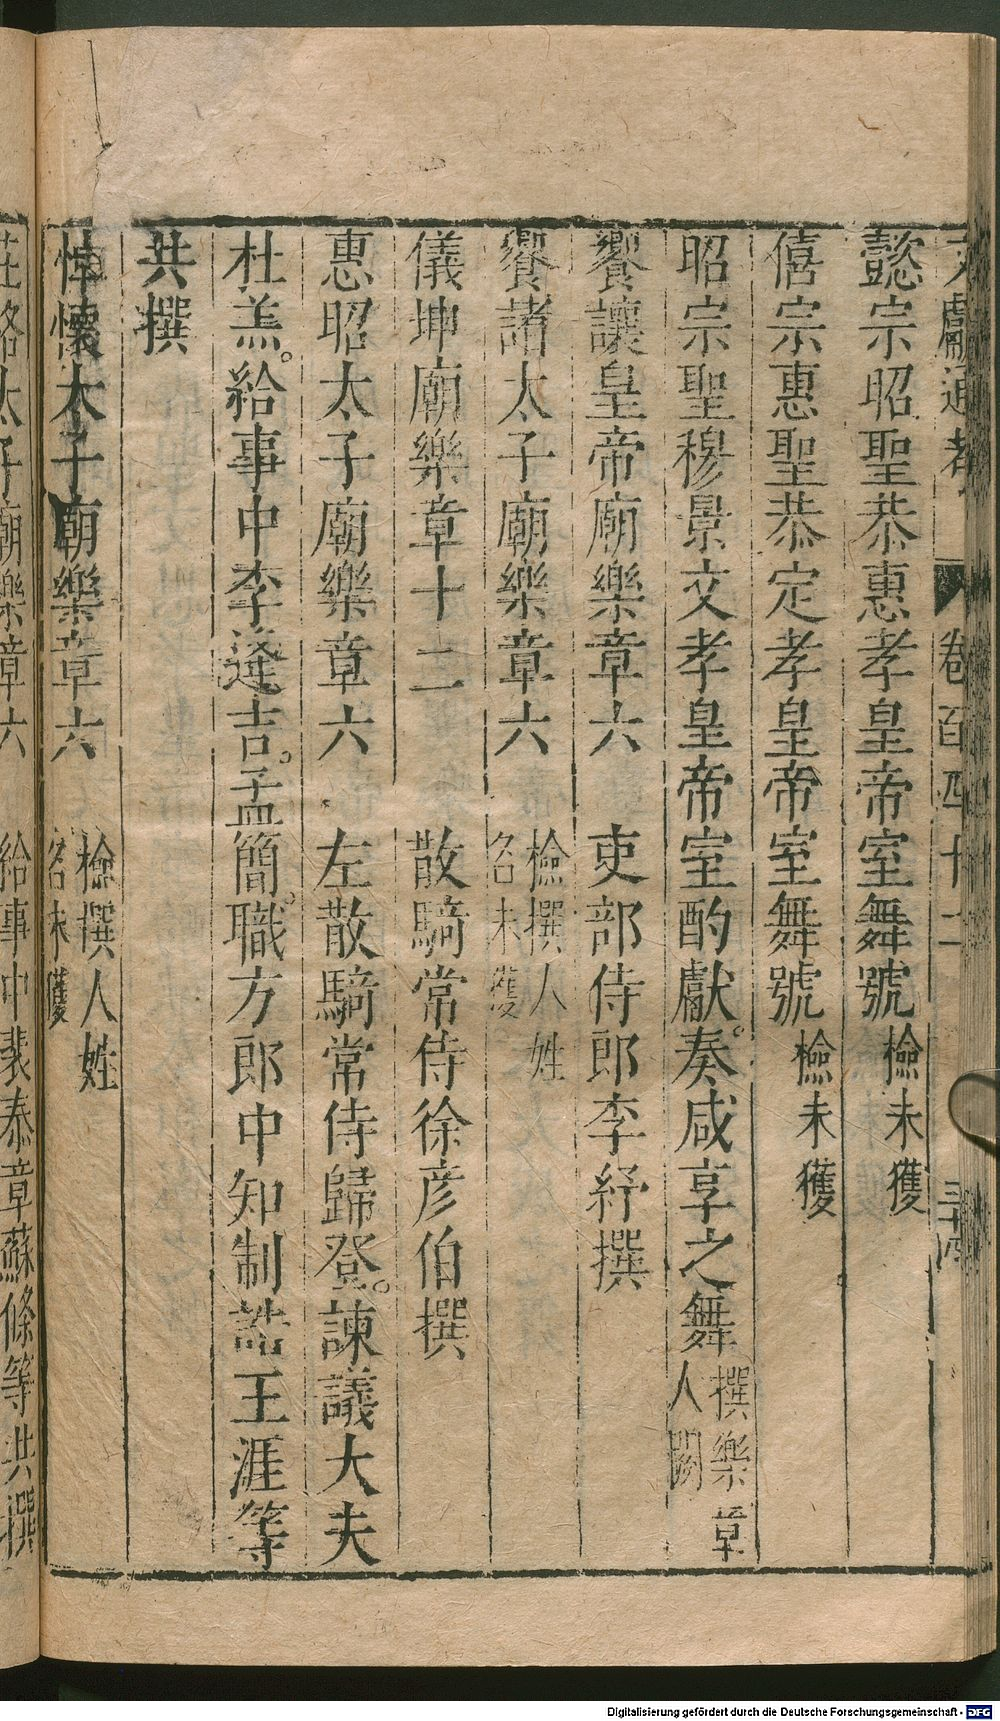 文獻通考 卷百四十二 三十四
懿宗昭聖恭惠孝皇帝室舞號檢未獲
僖宗惠聖恭定孝皇帝室舞號檢未獲
昭宗聖穆景文孝皇帝室酌獻。奏咸享之舞撰樂章人闕
饗讓皇帝廟樂章六 吏部侍郎李紓撰
饗諸太子廟樂章六 檢撰人姓名未獲
儀坤廟樂章十二 散騎常侍徐彦伯撰
惠昭太子廟樂章六 左散騎常侍歸登。諫議大夫
杜羔。給事中李逢吉。孟簡。職方郎中知制誥王涯等
共撰
悼懷太子廟樂章六 檢撰人姓名未獲
莊恪太子廟樂章六 給事中裴泰章蘇滌等共撰
Digitalisierung gefördert durch die Deutsche Forschungsgemeinschaft - DFG